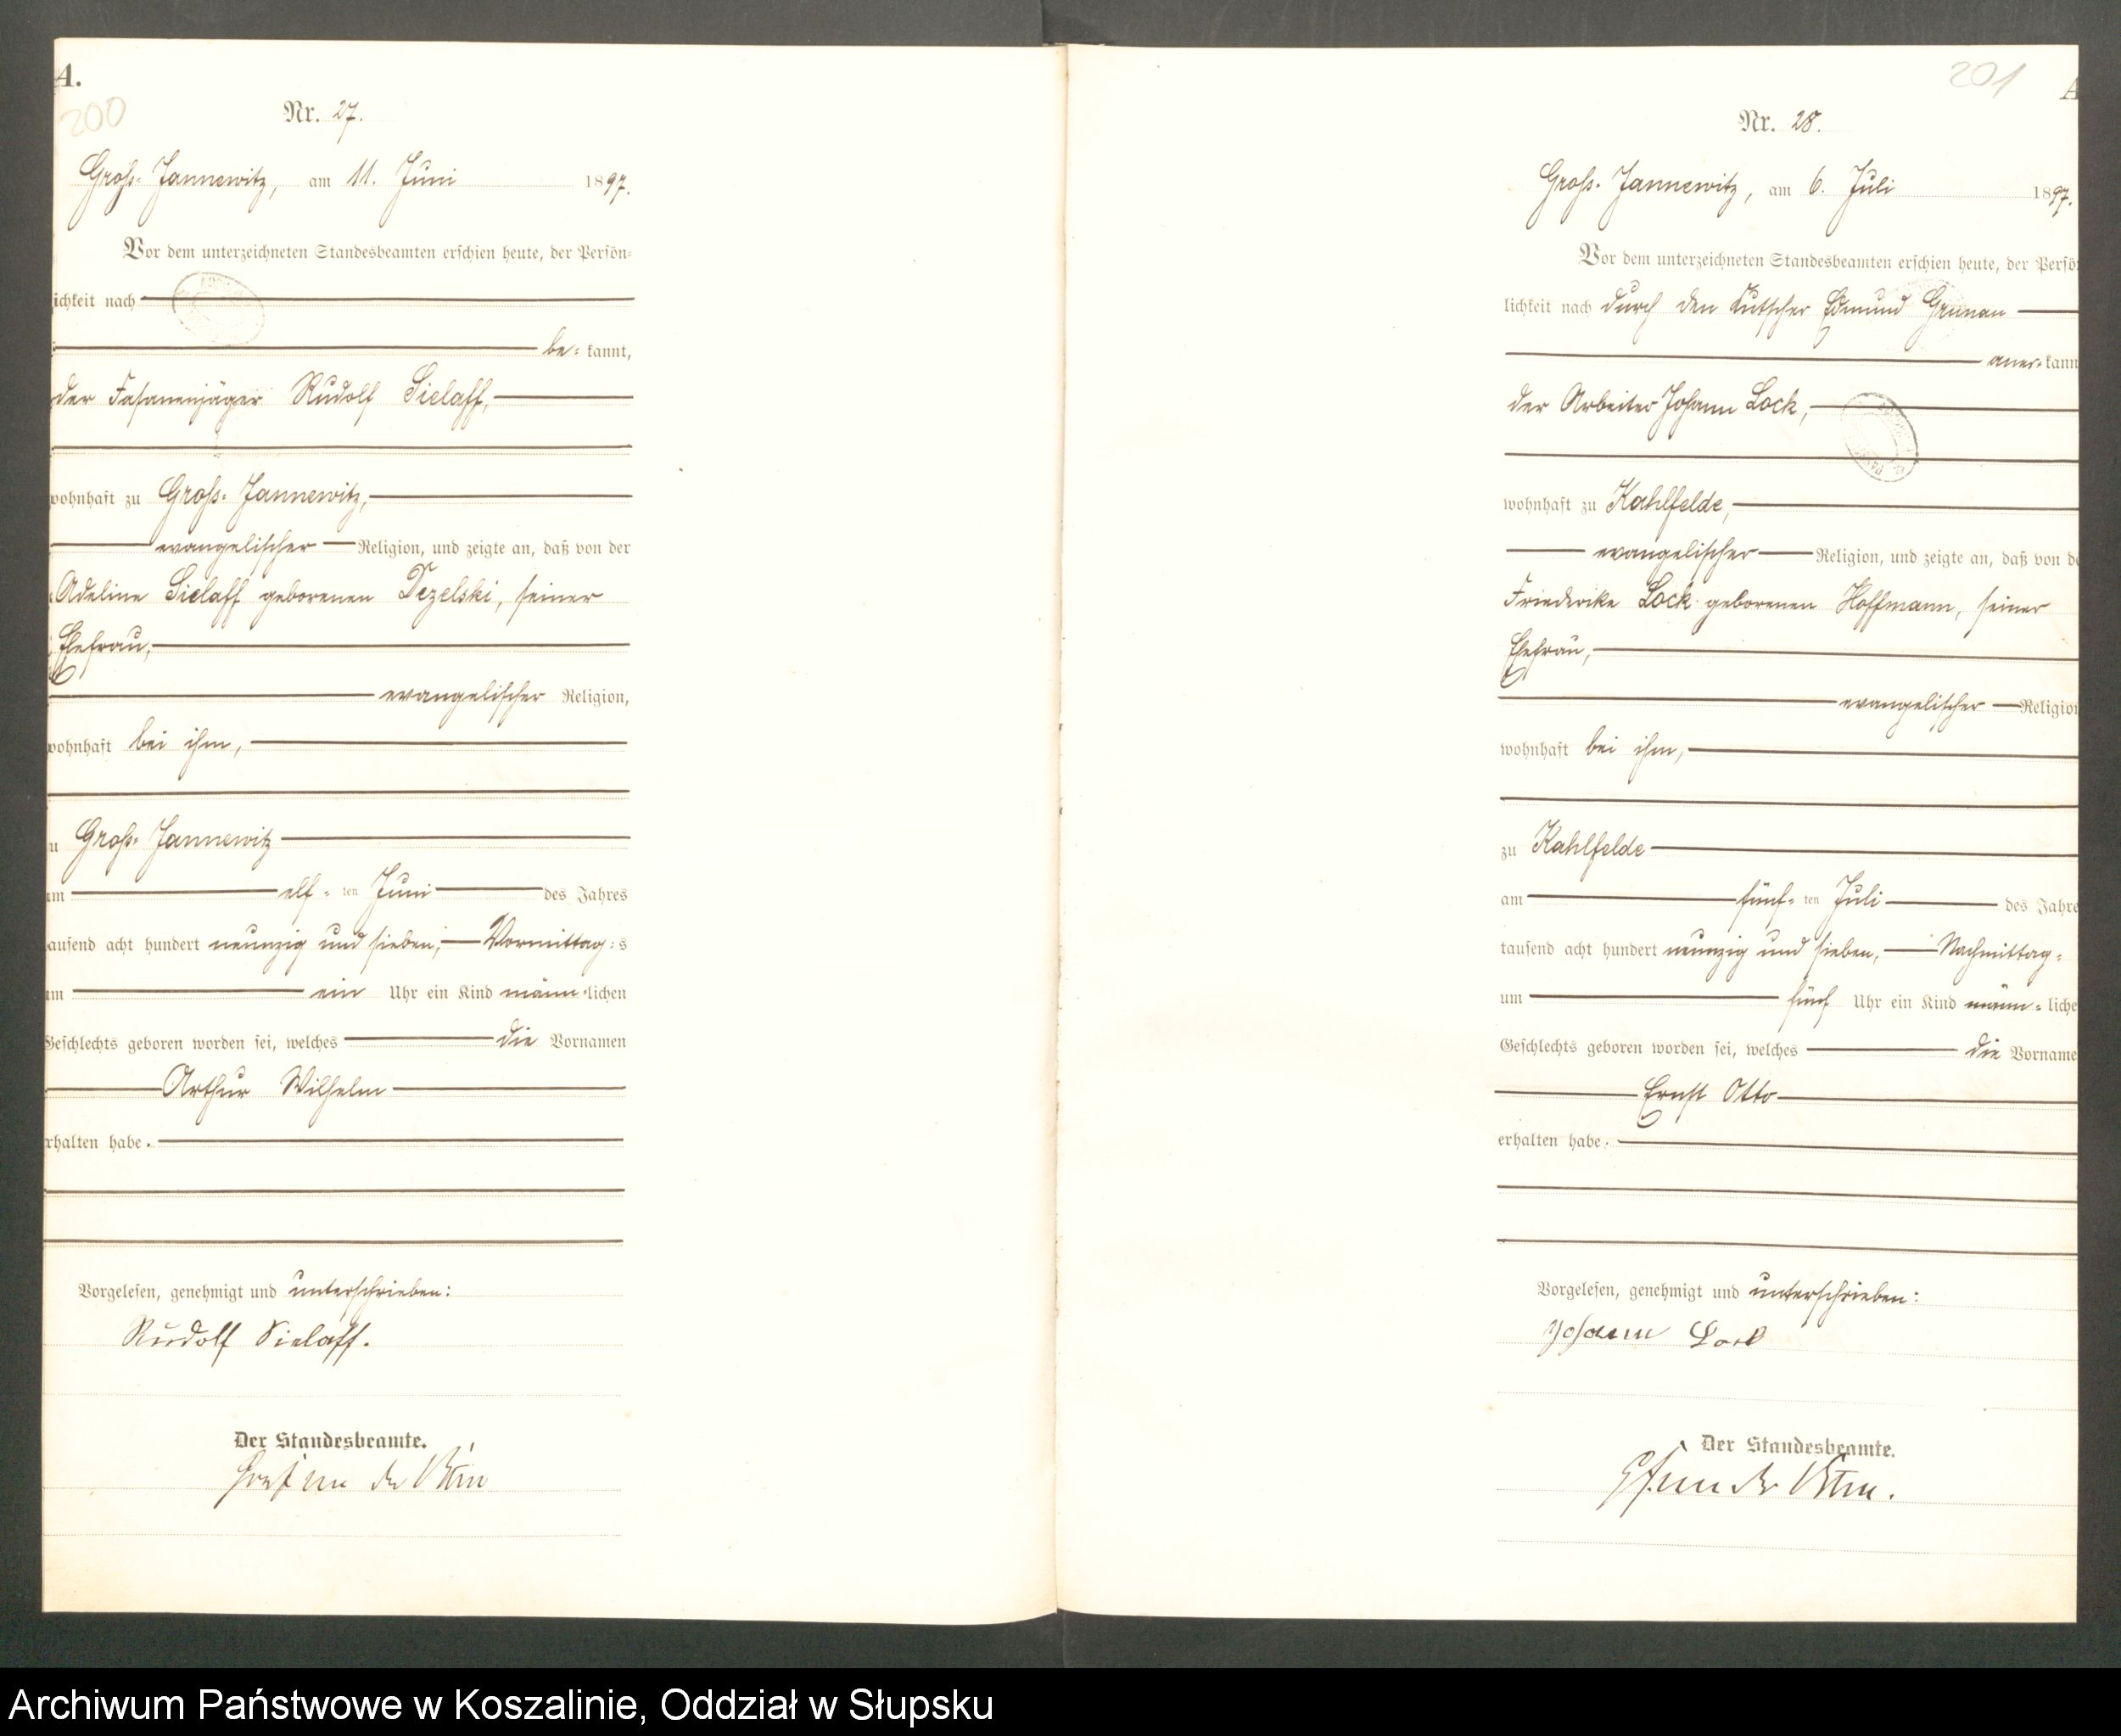 A.
200
Nr. 27.
Groß-Jannewitz, am 11. Juni 1897.
Vor dem unterzeichneten Standesbeamten erschien heute, der Persön-
ichkeit nach
be-kannt,
der Fasanenjäger Rudolf Sielaff,
wohnhaft zu Groß-Jannewitz,
evangelischer Religion, und zeigte an, daß von der
Adeline Sielaff geborenen Dezelski, seiner
Ehefrau,
evangelischer Religion,
wohnhaft bei ihm,
u Groß-Jannewitz
am elf-ten Juni des Jahres
tausend acht hundert neunzig und sieben, Vormittag:s
um ein Uhr ein Kind männ-lichen
Geschlechts geboren worden sei, welches die Vornamen
Arthur Wilhelm
erhalten habe.
Vorgelesen, genehmigt und unterschrieben:
Rudolf Sielaff.
Der Standesbeamte.
201
A
Nr. 28.
Groß-Jannewitz, am 6. Juli 1897.
Vor dem unterzeichneten Standesbeamten erschien heute, der Persö
lichkeit nach durch den Kutscher Edmund Grunau
aner-kann
der Arbeiter Johann Lock,
wohnhaft zu Kahlfelde,
evangelischer Religion, und zeigte an, daß von de
Friedericke Lock geborenen Hoffmann, seiner
Ehefrau,
evangelischer Religion
wohnhaft bei ihm,
zu Kahlfelde
am fünf-ten Juli des Jahre
tausend acht hundert neunzig und sieben, Nachmittag-
um fünf Uhr ein Kind männ-liche
Geschlechts geboren worden sei, welches die Vorname
Ernst Otto
erhalten habe.
Vorgelesen, genehmigt und unterschrieben:
Johann Lock
Der Standesbeamte.
Archiwum Państwowe w Koszalinie, Oddział w Słupsku